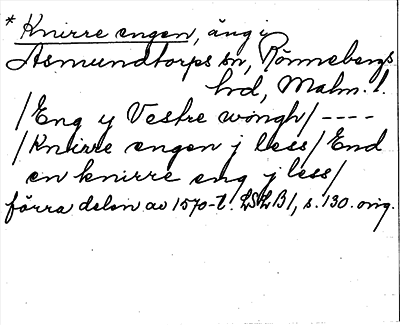 * Knirre engen, äng i
Asmundtorps sn, Rönnebergs
hd, Malm. l.
/Eng y Vestre wongh/ ----
/Knirre engen j less/ End
en knirre eng j less/
förra delen av 1570-t. LSLB1, s. 130. orig.